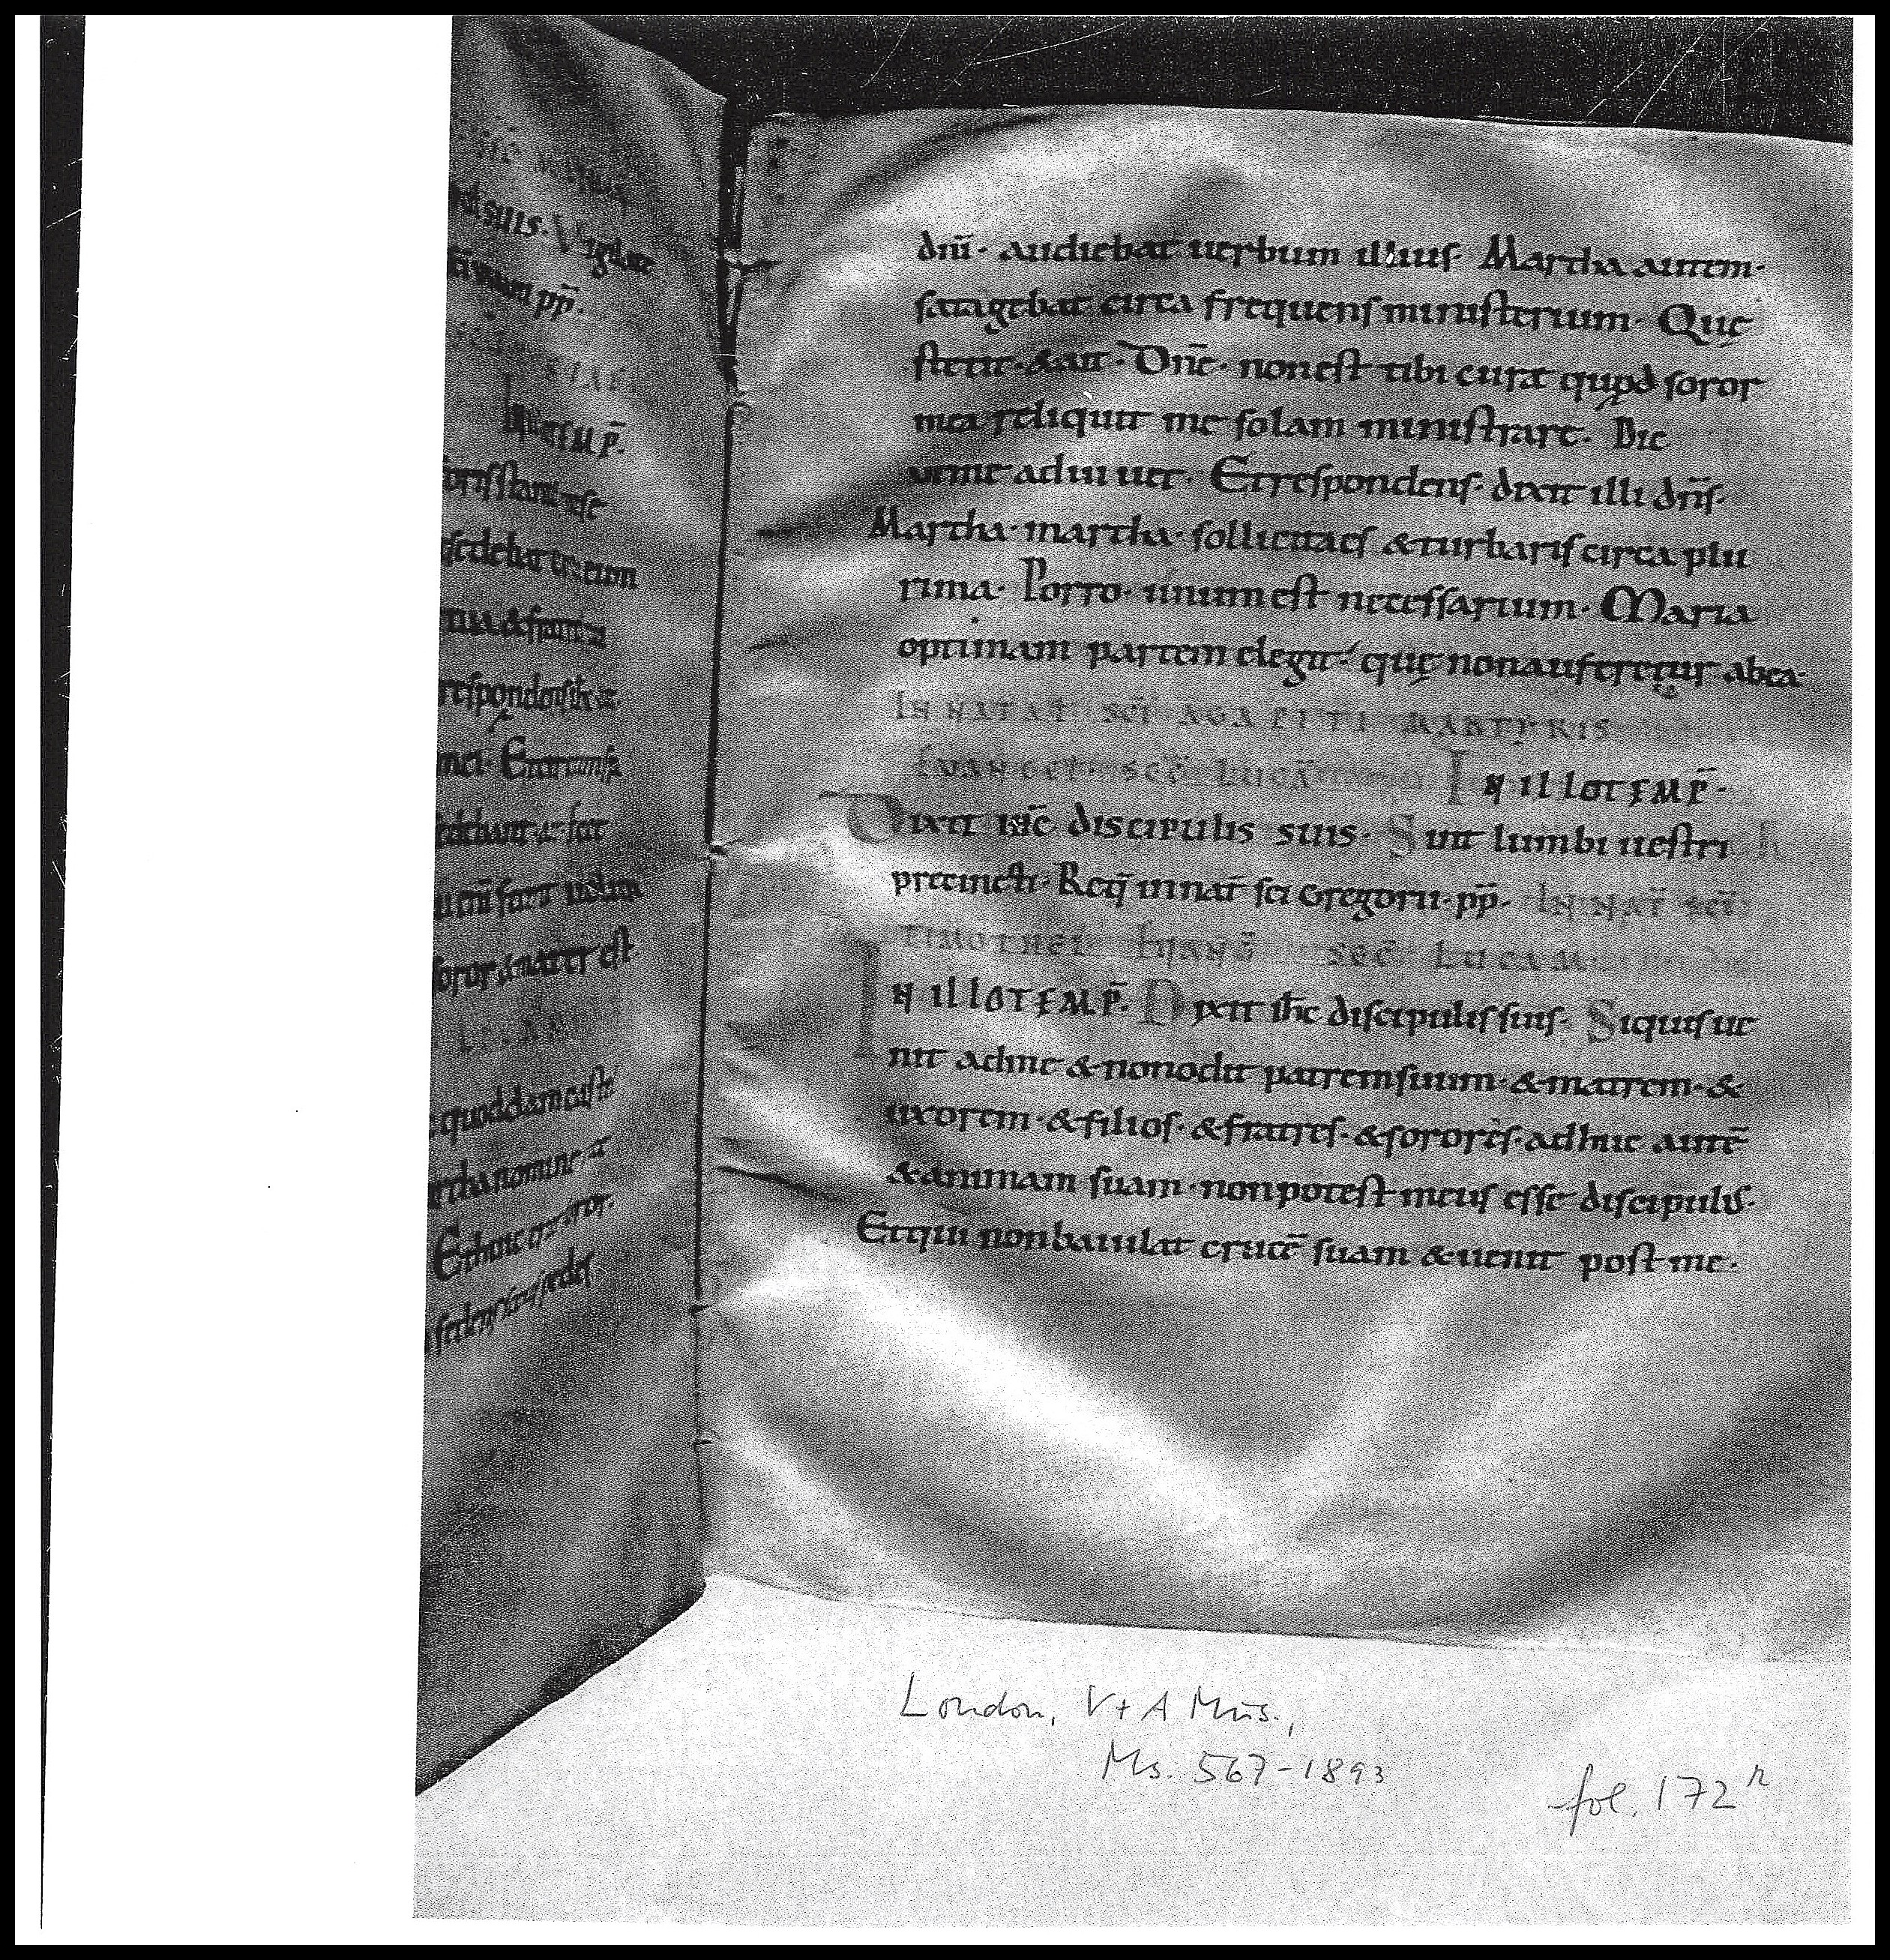 suis. Vigilate
pp̄.
temp̄.
sedebat
respondens
mei. Et
soror & mater est.
quoddam
nomine
soror.
dn̄i· audiebat uerbum illius· Martha autem·
satagebat circa frequens ministerium· Quę
stetit· & ait· Dn̄e· non est tibi curę quod soror
mea reliquit me solam ministrare· Dic
ut me adiuuet· Et respondens· dixit illi dn̄s·
Martha· martha· sollicita es & turbaris circa plu
rima· Porro· unum est necessarium· Maria
optimam partem elegit· quę non auferetur ab ea·
IN NATAƚ SC̄I AGAPITI MARTYRIS
EVANGEƚ· SEC̄ LUCĀ IN ILLO TEMP̄·
Dixit ih̄c discipulis suis· Sint lumbi uestri
precincti· Req̄ in naƚ sc̄i Gregorii· pp̄· IN NAƚ SC̄I
TIMOTHEI EUANḠ SEC̄ LUCAM
IN ILLO TEMP̄· Dixit ih̄c discipulis suis· Si quis ue
nit ad me & non odit patrem suum· & matrem· &
uxorem· & filios· & fratres· & sorores· adhuc autē
& animam suam· non potest meus esse discipulus·
Et qui non baiulat crucē suam & uenit post me·
London, V+A Mus.,
Ms. 567-1893
fol. 172 r